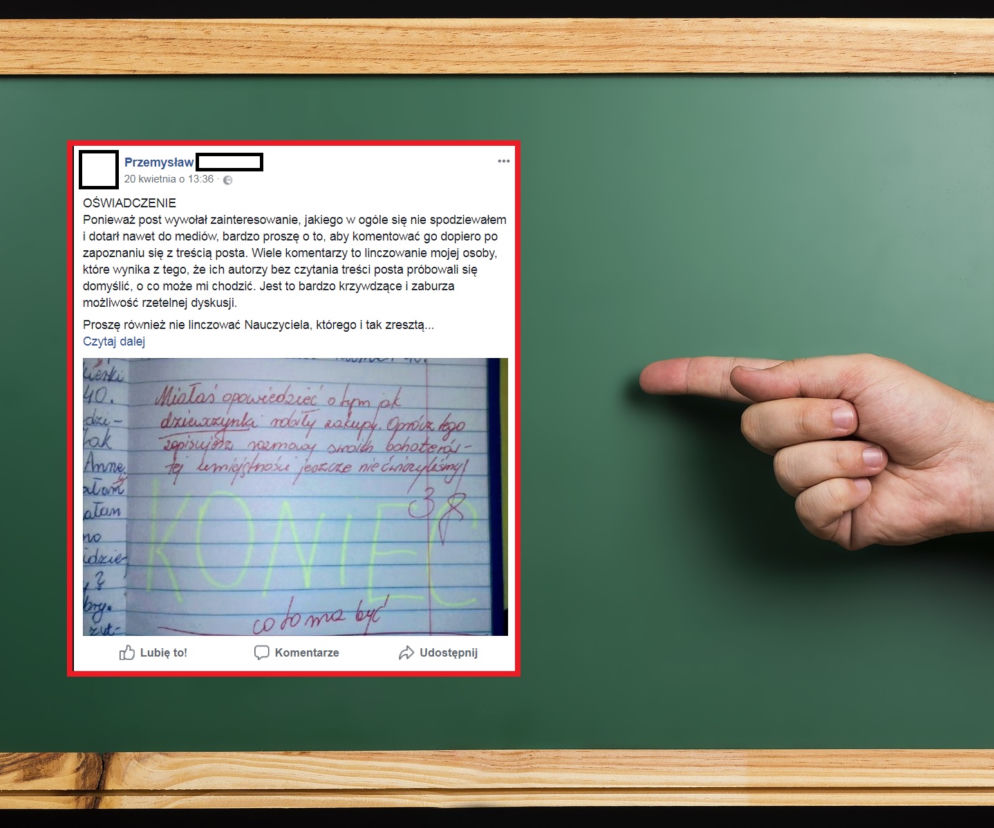 Przemysław
20 kwietnia o 13:36 ·
OŚWIADCZENIE
Ponieważ post wywołał zainteresowanie, jakiego w ogóle się nie spodziewałem
i dotarł nawet do mediów, bardzo proszę o to, aby komentować go dopiero po
zapoznaniu się z treścią posta. Wiele komentarzy to linczowanie mojej osoby,
które wynika z tego, że ich autorzy bez czytania treści posta próbowali się
domyślić, o co może mi chodzić. Jest to bardzo krzywdzące i zaburza
możliwość rzetelnej dyskusji.
Proszę również nie linczować Nauczyciela, którego i tak zresztą...
Czytaj dalej
40.
dzi-
Jak
Annę
no
idzie-
?
Miałaś opowiedzieć o tym jak
dziewczynka robiły zakupy. Oprócz tego
zapisujesz rozmowy swoich bohaterów -
tej umiejętności jeszcze nie ćwiczyliśmy!
3
KONIEC
co to ma być
Lubię to!
Komentarze
Udostępnij